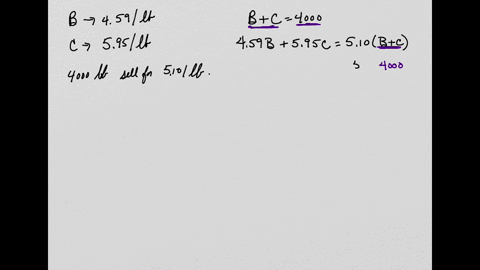 B → 4.59/lb
C → 5.95/lb
4000 lb sell for 5.10/lb.
B+C = 4000
4.59B + 5.95C = 5.10(B+C)
4000